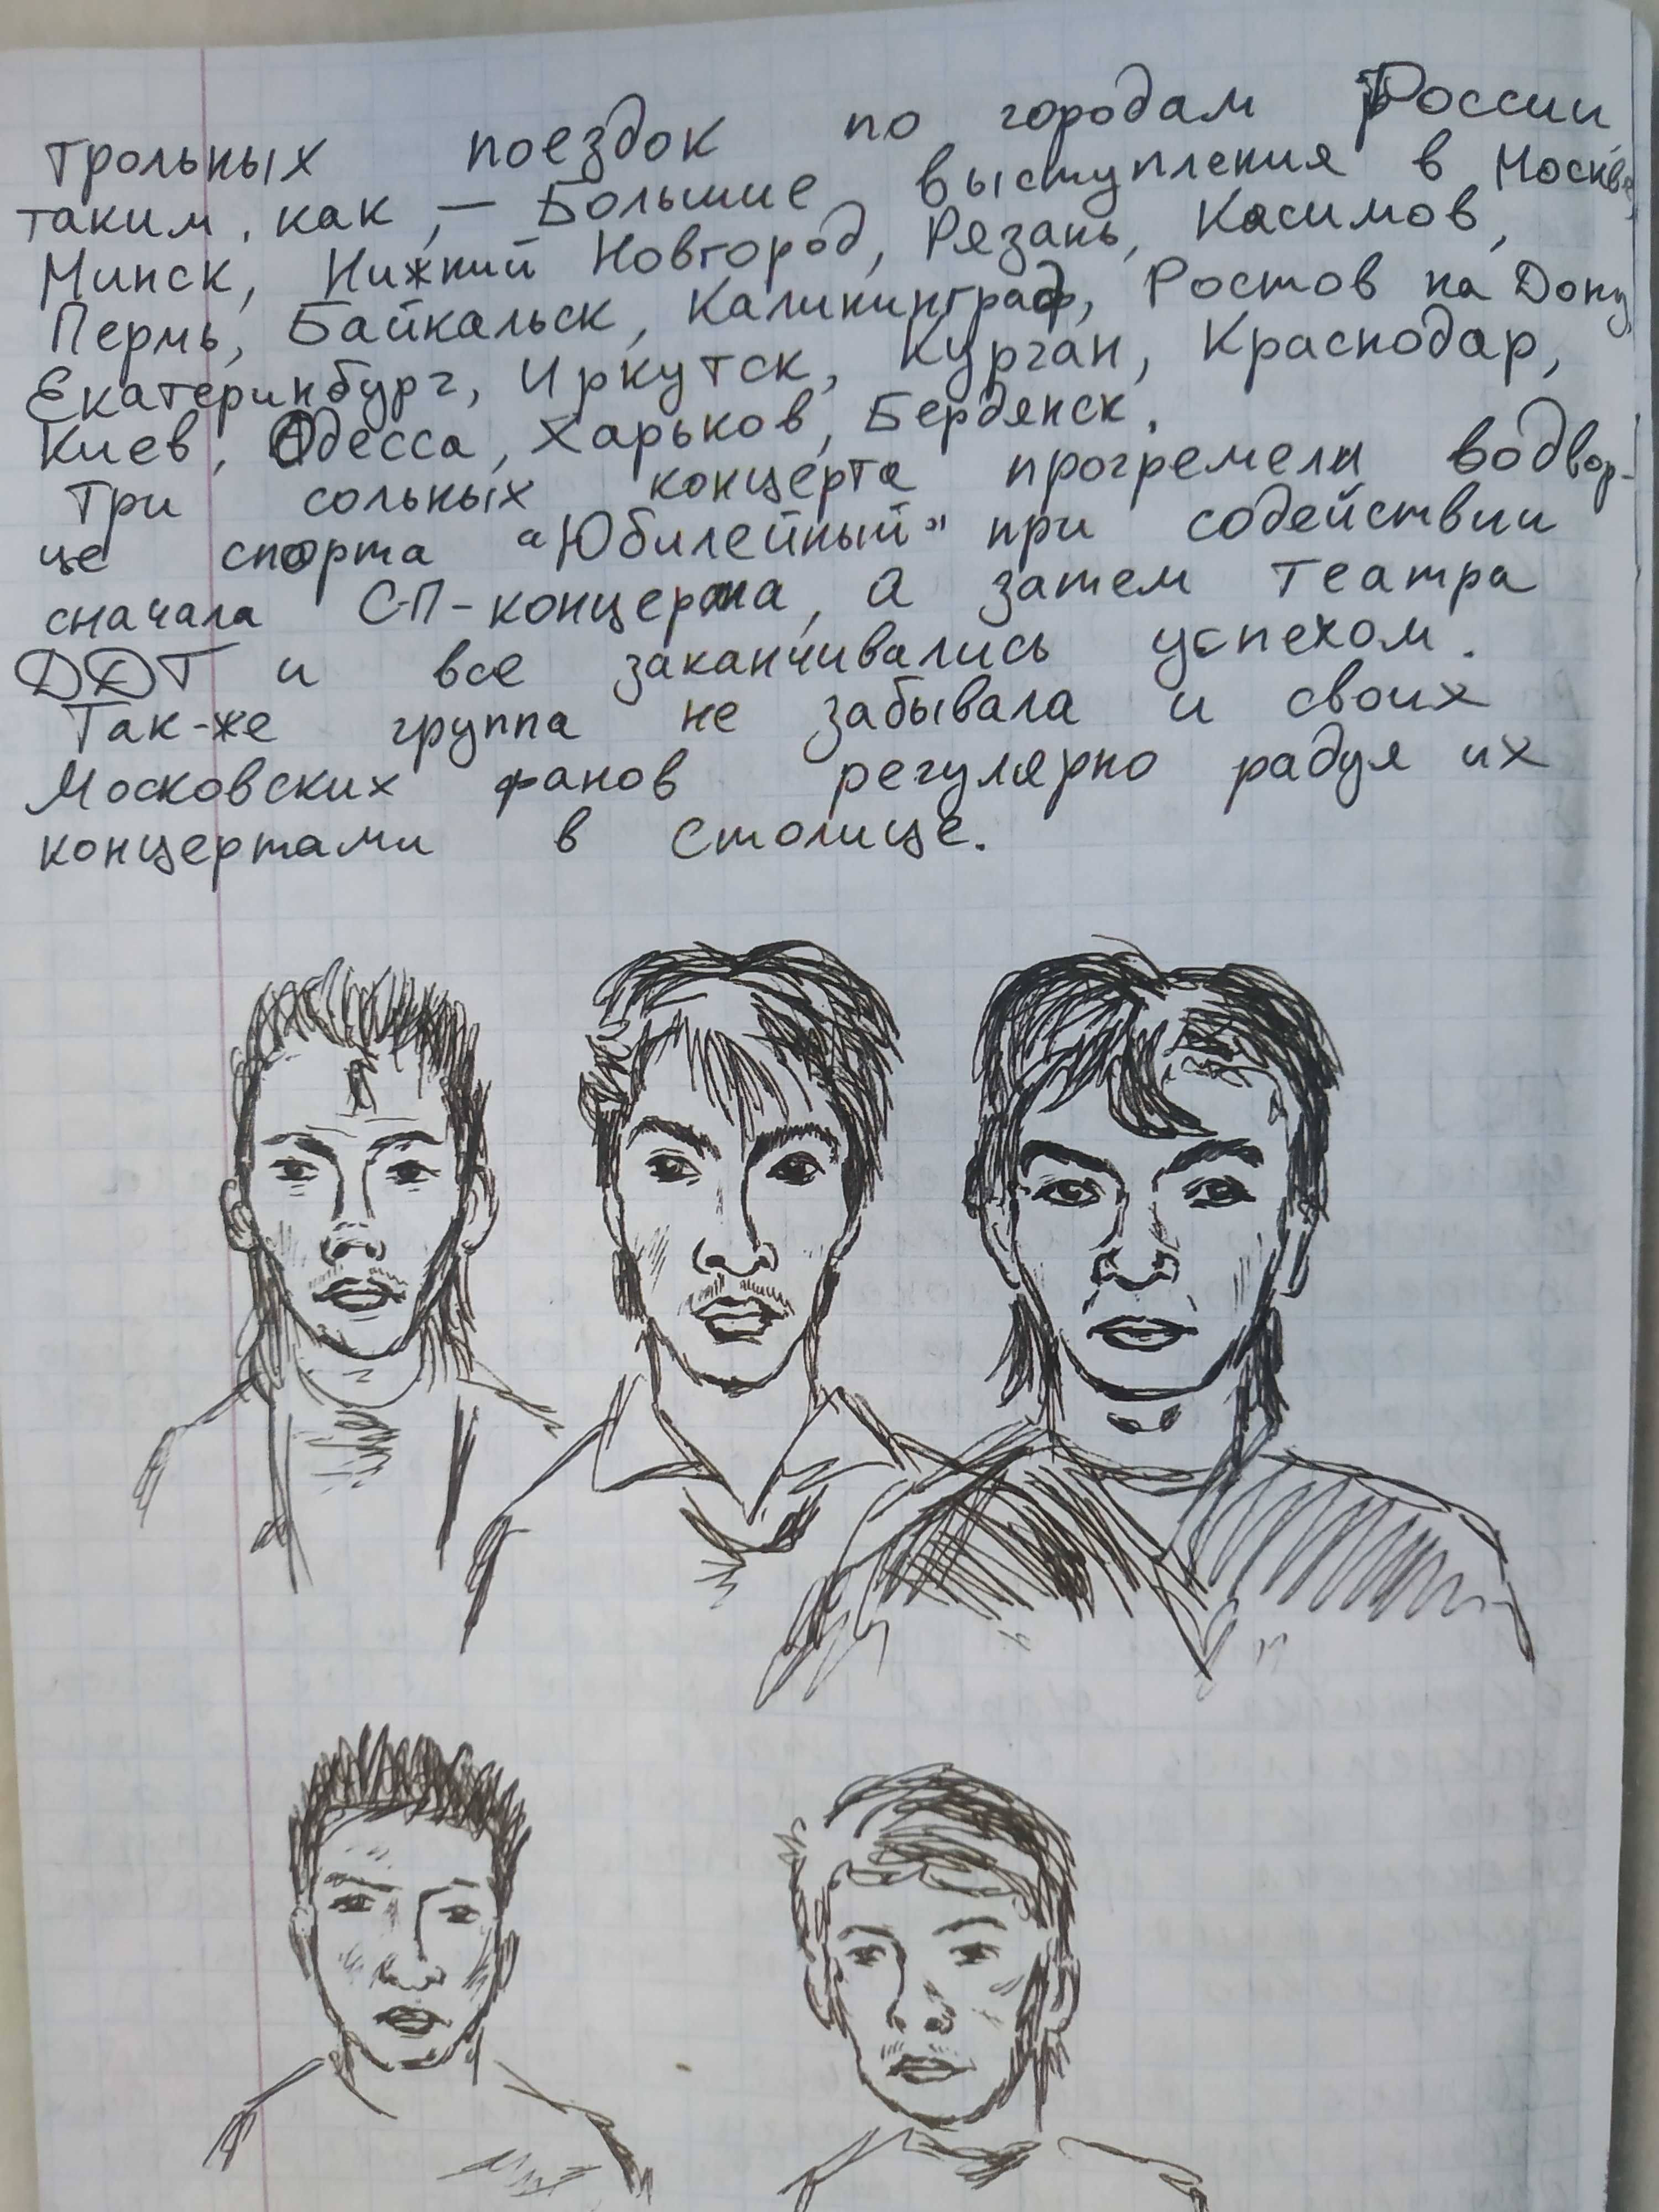 трольных поездок по городам России
таким, как, — Большие выступления в Москве,
Минск, Нижний Новгород, Рязань, Касимов,
Пермь, Байкальск, Калининград, Ростов на Дону,
Екатеринбург, Иркутск, Курган, Краснодар,
Киев, Одесса, Харьков, Бердянск.
Три сольных концерта прогремели водвор-
це спорта "Юбилейный" при содействии
сначала СП-концерта, а затем театра
ДДТ и все заканчивались успехом.
Так-же группа не забывала и своих
Московских фанов регулярно радуя их
концертами в столице.